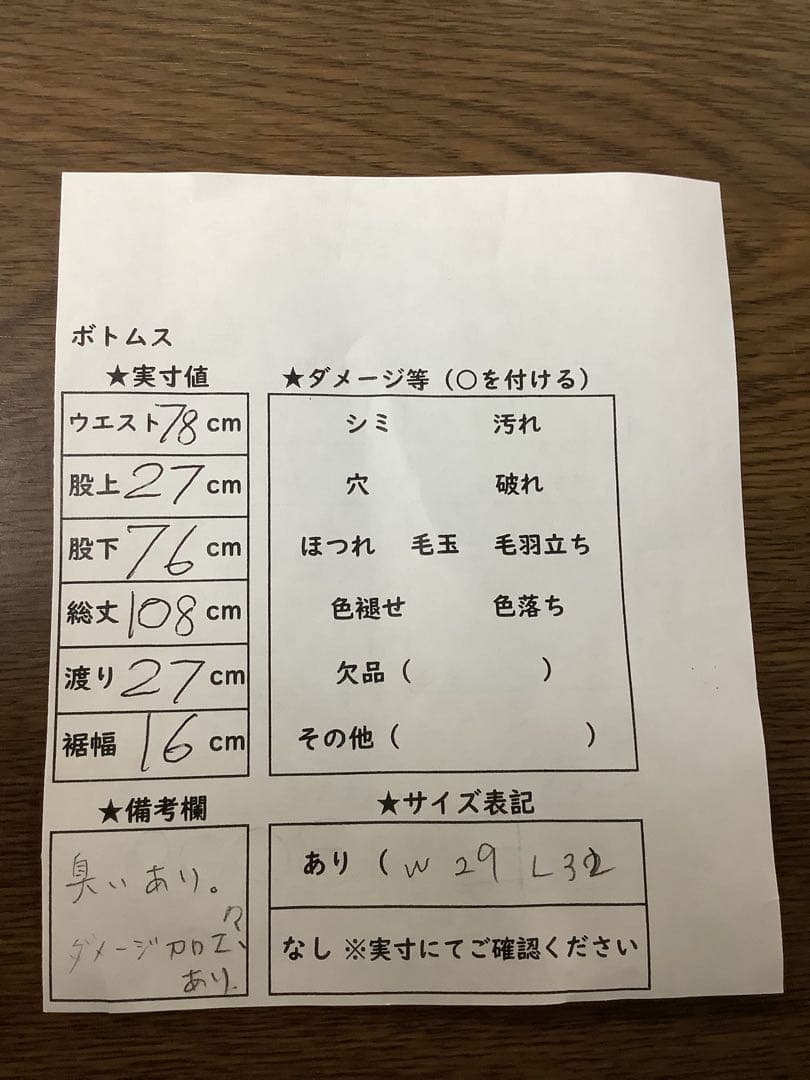 ボトムス
★実寸値
ウエスト78cm
股上27cm
股下76cm
総丈108cm
渡り27cm
裾幅16cm
★ダメージ等（○を付ける）
シミ 汚れ
穴 破れ
ほつれ 毛玉 毛羽立ち
色褪せ 色落ち
欠品（ ）
その他（ ）
★備考欄
臭いあり。
ダメージ加工
あり.
★サイズ表記
あり（W 29 L32
なし ※実寸にてご確認ください